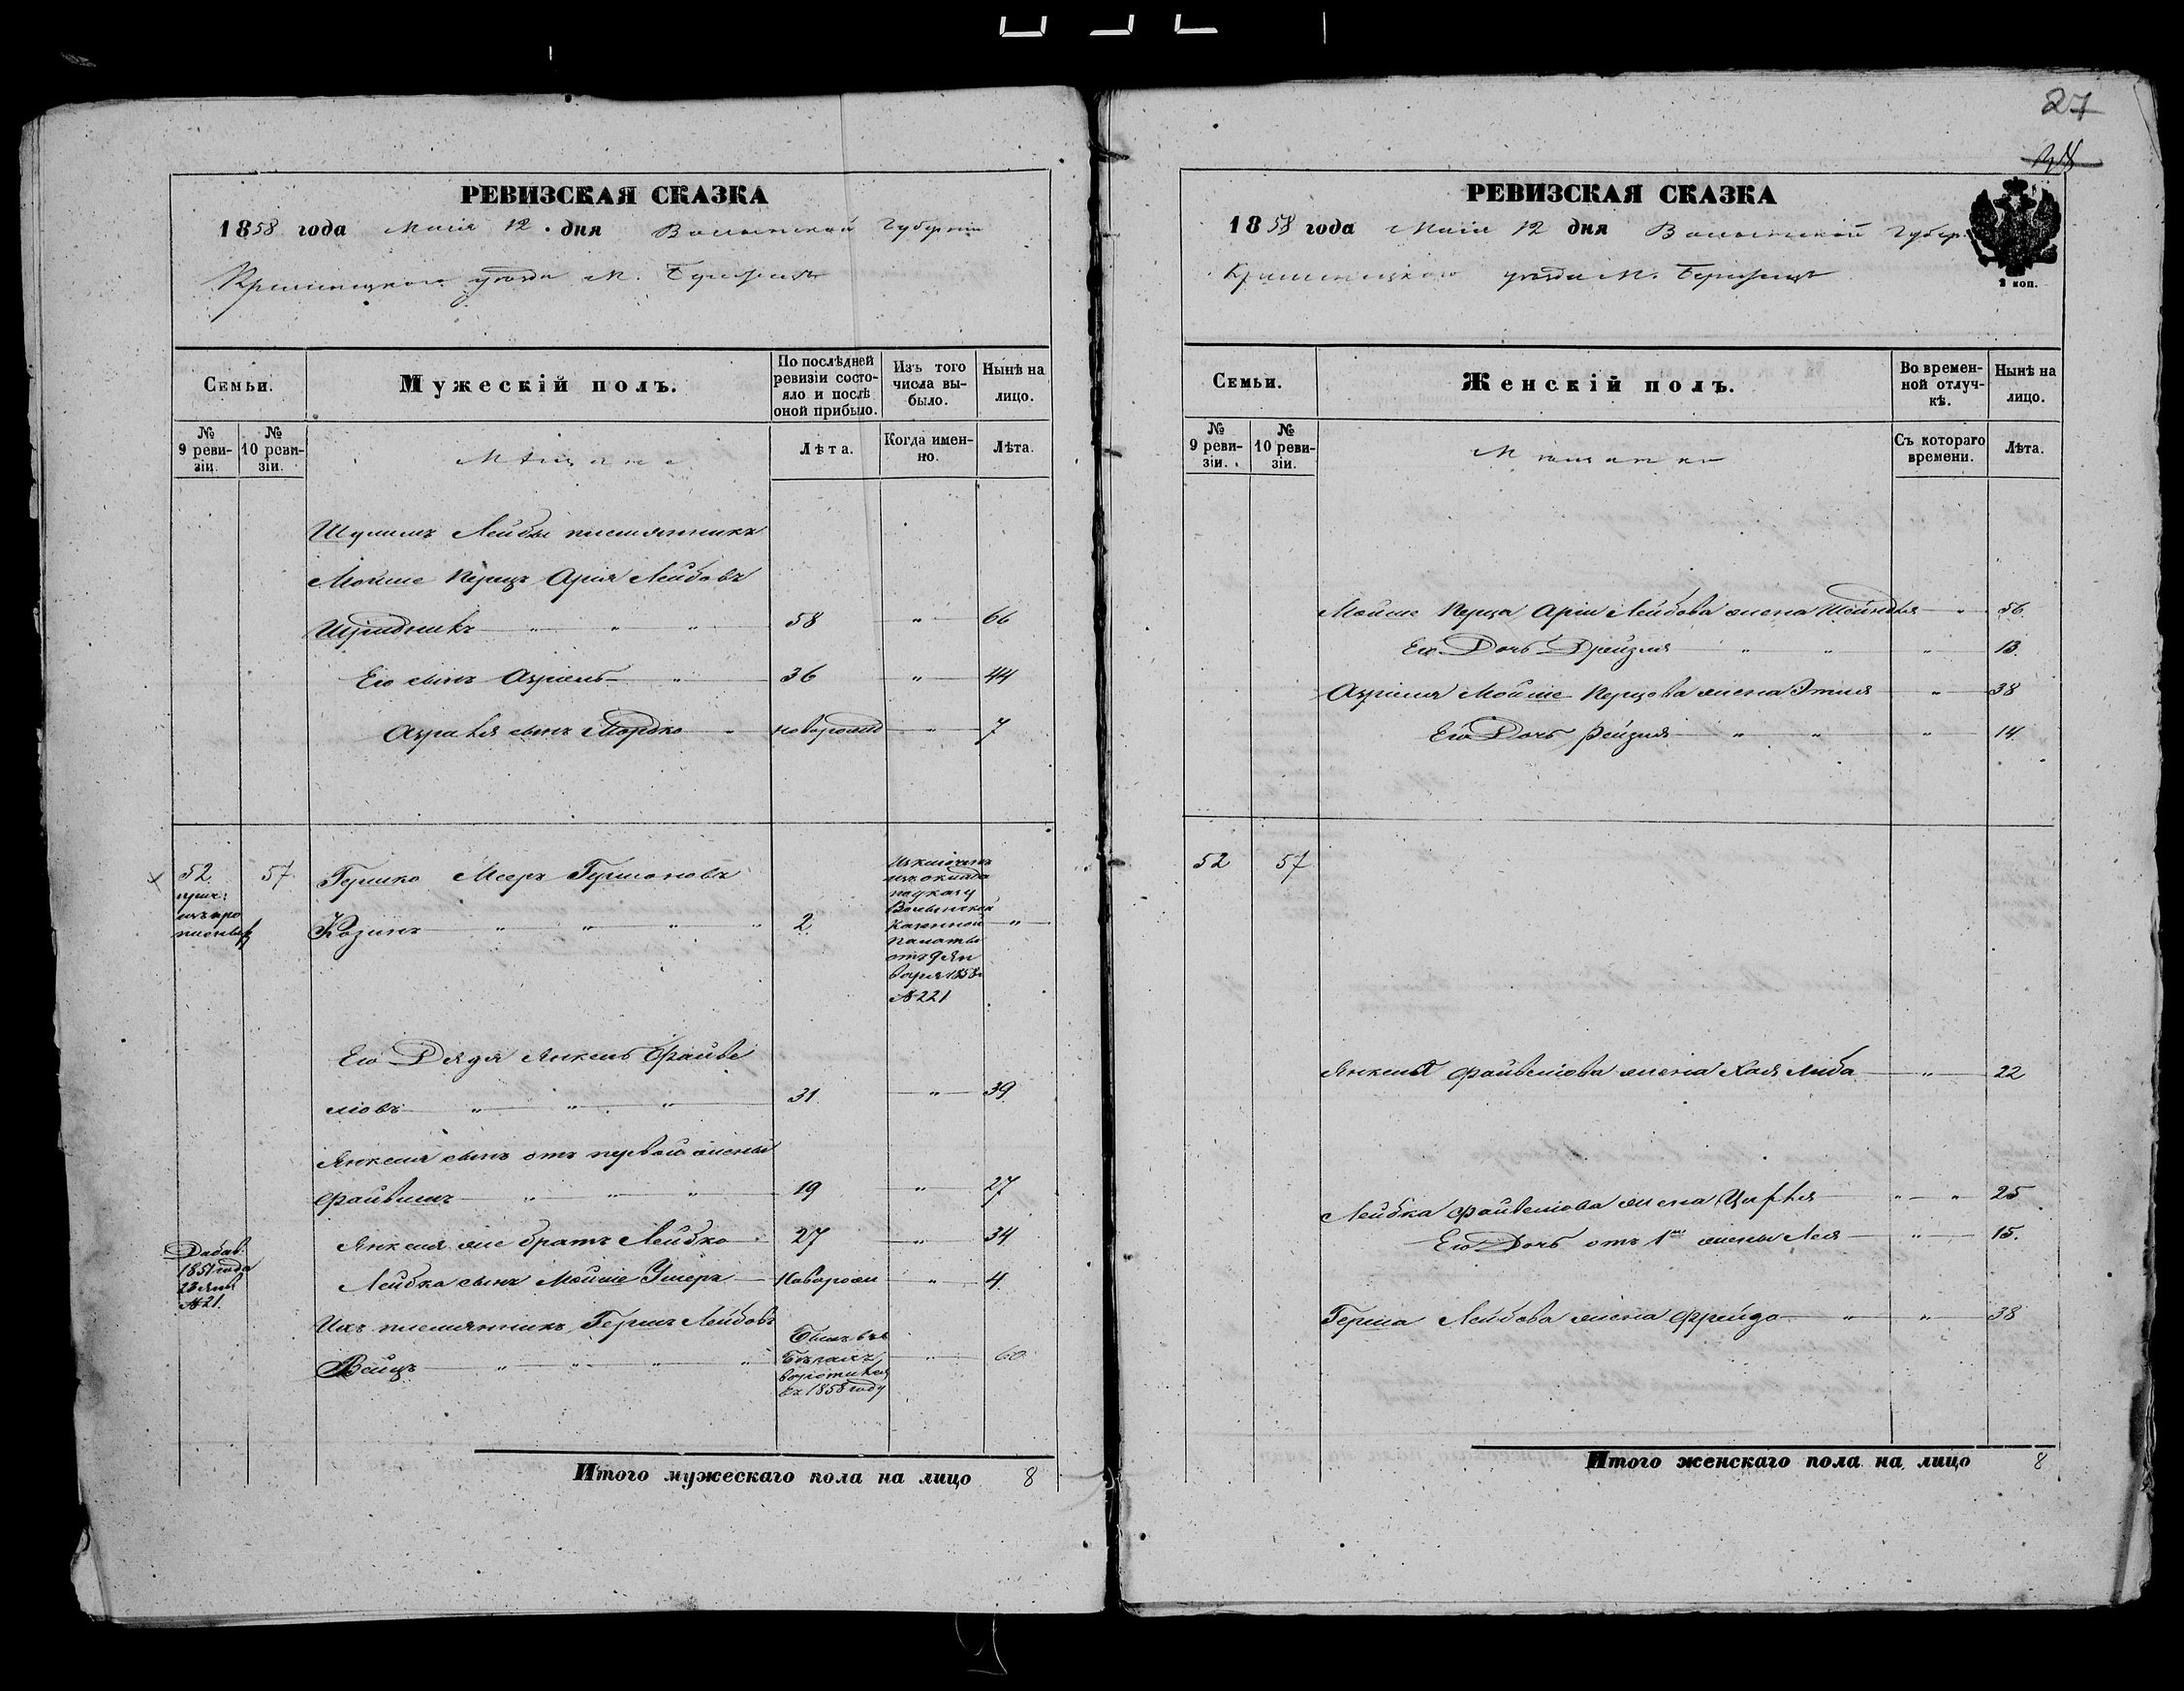 РЕВИЗСКАЯ СКАЗКА
1858 года Маія 12 дня Волынской Губерніи
Кременецкого уѣзда м.
Семьи.
Мужескій полъ.
По послѣдней ревизіи состояло и послѣ оной прибыло.
Изъ того числа выбыло.
Нынѣ на лицо.
№ 9 ревизіи.
№ 10 ревизіи.
Мѣщане
Лѣта.
Когда именно.
Лѣта.
Лейбы племянникъ
Мойше Перецъ Арія Лейбовъ
58 " 66
Его сынъ Азріель " 36 " 44
сынъ Мордко новорожд " 7
52 57 Гершко Меер Гершоновъ
Козинъ " " " " 2 "
Исключенъ
изъ оклада
по указу
Волынской
Казенной
Палаты
отъ 9 Ян
варя 1858
№ 221
Его Дядя Янкель Файве
ловъ " " " 31 " 39
Янкеля сынъ отъ первой жены
Файвель " " " 19 " 27
Янкеля же братъ Лейбко 27 " 34
Добав.
1851 года
23 Янв
№ 21.
Лейбка сынъ Мойше Ушеръ новорож " 4
Ихъ племянникъ Гершъ Лейбовъ
Вейцъ " " " " " 60
въ 1858 году
Итого мужескаго пола на лицо 8
27
РЕВИЗСКАЯ СКАЗКА
1858 года Маія 12 дня Волынской Губер.
Кременецкого уѣзда м.
2 коп.
Семьи.
Женскій полъ.
Во временной отлучкѣ.
Нынѣ на лицо.
№ 9 ревизіи.
№ 10 ревизіи.
Мѣщанки
Съ котораго времени.
Лѣта.
Мойше Перца Аріи Лейбова жена Шейндля " 56
Его Дочь Дрейзля " " " 13
Азріеля Мойше Перцова жена Этля " 38
Его Дочь Рейзля " " " 14
52 57
Янкеля Файвелова жена Хая Либа " 22
Лейбка Файвелова жена " " 25
Его Дочь отъ 1й жены Лея " 15.
Герша Лейбова жена Фрейда " " 38
Итого женскаго пола на лицо 8